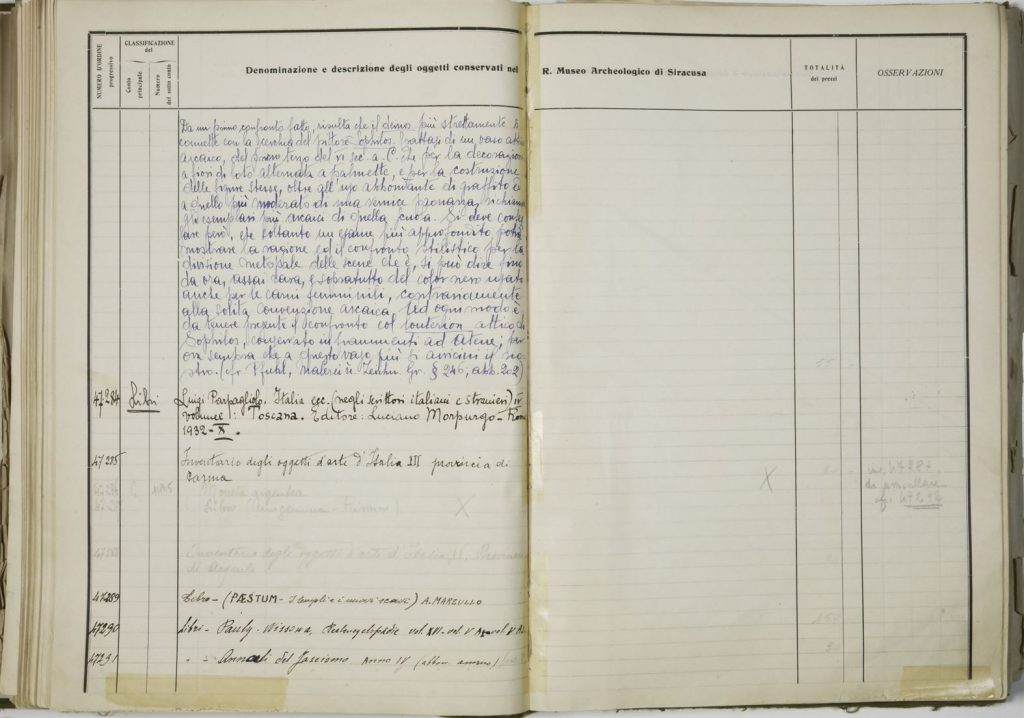 NUMERO D'ORDINE progressivo
CLASSIFICAZIONE del
Conto principale
Numero del sotto conto
Denominazione e descrizione degli oggetti conservati nel R. Museo Archeologico di Siracusa
TOTALITÀ dei prezzi
OSSERVAZIONI
Da un primo confronto fatto, risulta che il deinos più strettamente si
connette con la cerchia del pittore Sophilos. Trattasi di un vaso attico
arcaico, del primo terzo del VI sec. a. C. che per la decorazione
a fiori di loto alternata a palmette, e per la costruzione
delle figure stesse, oltre all'uso abbondante di graffito e
a quello più moderato di una vernice paonazza, richiama
gli esemplari più arcaici di quella scuola. Si deve
però, che soltanto un esame più approfondito potrà
mostrare la ragione ed il confronto stilistico per la
divisione metopale delle scene che è, si può dire fino
da ora, assai rara, e sopratutto del color nero usato
anche per le carni femminili, contrariamente
alla solita convenzione arcaica. Ad ogni modo è
da tenere presente il confronto col louterion attico di
Sophilos, conservato in frammenti ad Atene; per
ora sembra che a questo vaso più si avvicini il no-
stro. (cfr. Pfuhl, Malerei u. Zeichn. Gr. § 246, abb. 202)
47284 Libri Luigi Parpagliolo. Italia ecc. (negli scrittori italiani e stranieri) IV
volume: Toscana. Editore: Luciano Morpurgo - Roma
1932-X.
47285 Inventario degli oggetti d'arte d'Italia III provincia di
Parma
Moneta argentea
47287
47292
Inventario degli oggetti d'arte d'Italia, II. Provincia
di Aquila
47289 Libro - (PÆSTUM - I templi e i nuovi scavi) A. MARZULLO
47290 Libri - Pauly-Wissowa, Realencyclopädie vol. XVI - vol. V
47291 " " Annali del Fascismo. Anno IV